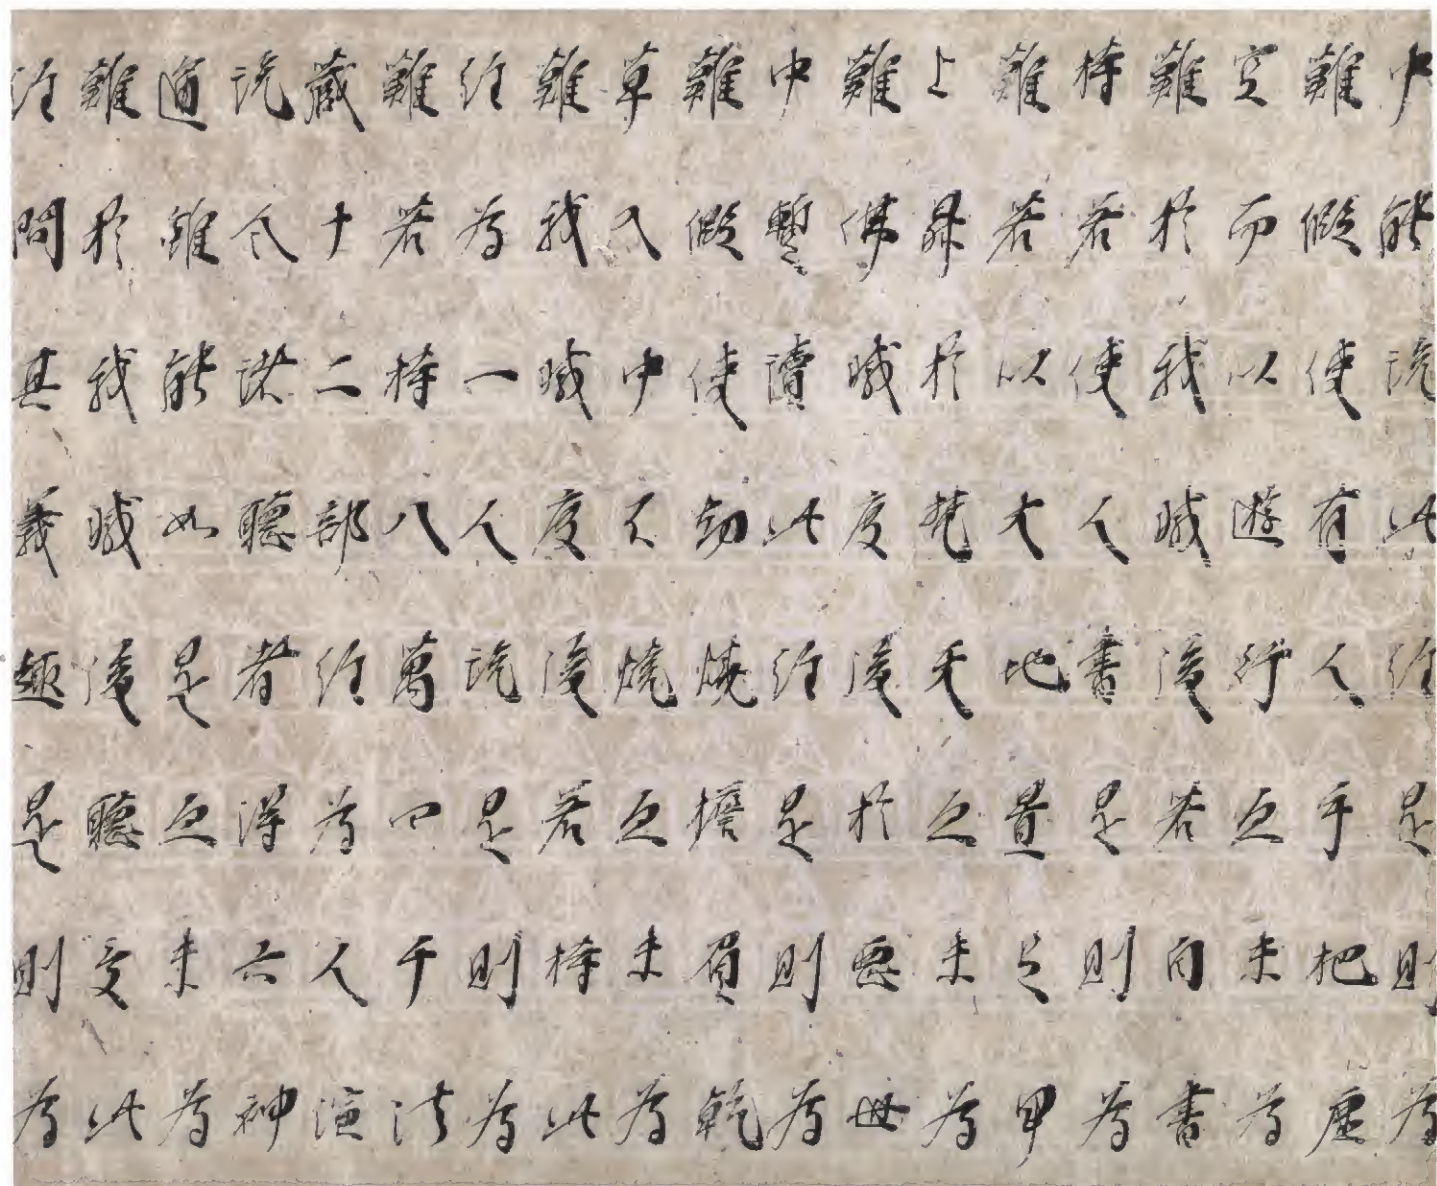 中能說此經是則為
難假使有人手把虛
空而以遊行亦未為
難於我滅後若自書
持若使人書是則為
難若以大地置足甲
上昇於梵天亦未為
難佛滅度後於惡世
中暫讀此經是則為
難假使劫燒擔負乾
草入中不燒亦未為
難我滅度後若持此
經為一人說是則為
難若持八萬四千法
藏十二部經為人演
說令諸聽者得六神
通雖能如是亦未為
難於我滅後聽受此
經問其義趣是則為